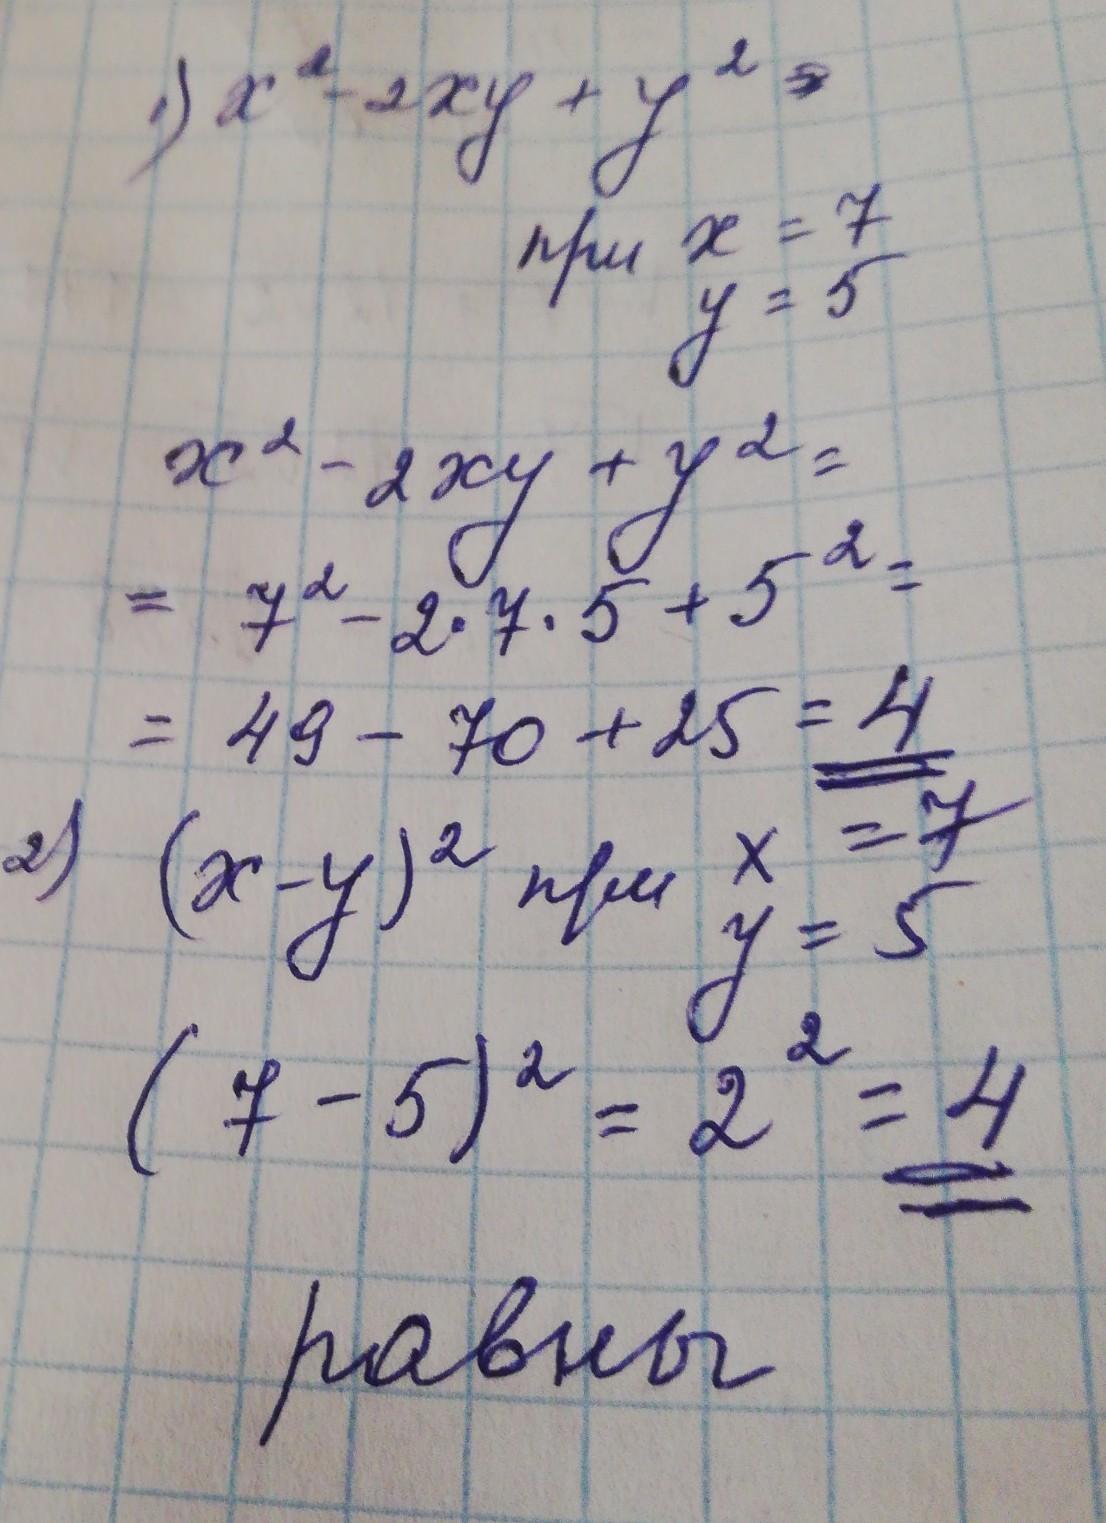 1) x² - 2xy + y² =
при x = 7
y = 5
x² - 2xy + y² =
= 7² - 2·7·5 + 5² =
= 49 - 70 + 25 = 4
2) (x-y)² при x = 7
y = 5
(7 - 5)² = 2² = 4
равны